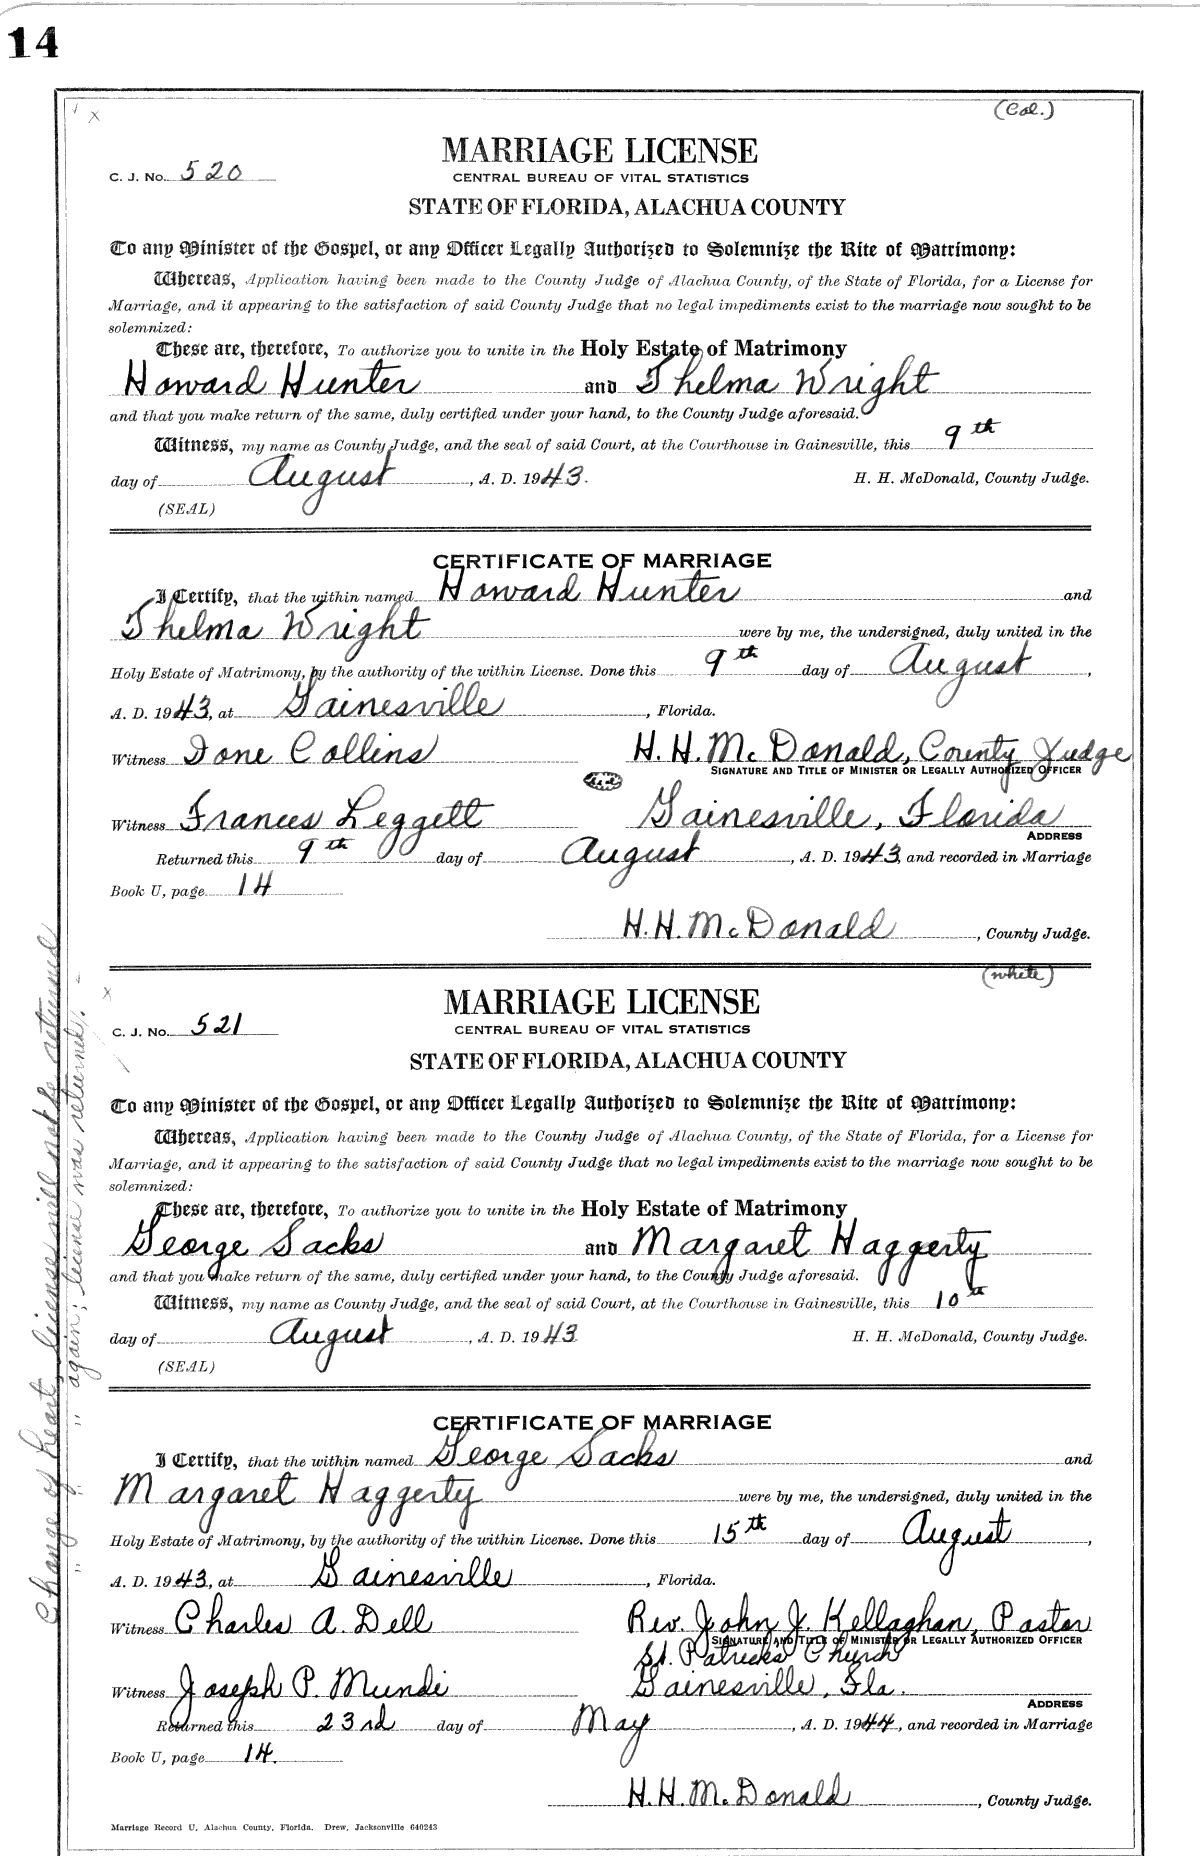 14
(Col.)
MARRIAGE LICENSE
C. J. No. 520
CENTRAL BUREAU OF VITAL STATISTICS
STATE OF FLORIDA, ALACHUA COUNTY
To any Minister of the Gospel, or any Officer Legally Authorized to Solemnize the Rite of Matrimony:
Whereas, Application having been made to the County Judge of Alachua County, of the State of Florida, for a License for
Marriage, and it appearing to the satisfaction of said County Judge that no legal impediments exist to the marriage now sought to be
solemnized:
These are, therefore, To authorize you to unite in the Holy Estate of Matrimony
Howard Hunter and Thelma Wright
and that you make return of the same, duly certified under your hand, to the County Judge aforesaid.
Witness, my name as County Judge, and the seal of said Court, at the Courthouse in Gainesville, this 9th
day of August, A. D. 1943. H. H. McDonald, County Judge.
(SEAL)
CERTIFICATE OF MARRIAGE
I Certify, that the within named Howard Hunter and
Thelma Wright were by me, the undersigned, duly united in the
Holy Estate of Matrimony, by the authority of the within License. Done this 9th day of August,
A. D. 1943, at Gainesville, Florida.
Witness Ione Collins H. H. McDonald, County Judge
SIGNATURE AND TITLE OF MINISTER OR LEGALLY AUTHORIZED OFFICER
Witness Frances Leggett Gainesville, Florida
ADDRESS
Returned this 9th day of August, A. D. 1943, and recorded in Marriage
Book U, page 14
H. H. McDonald, County Judge.
(white)
MARRIAGE LICENSE
C. J. No. 521
CENTRAL BUREAU OF VITAL STATISTICS
STATE OF FLORIDA, ALACHUA COUNTY
To any Minister of the Gospel, or any Officer Legally Authorized to Solemnize the Rite of Matrimony:
Whereas, Application having been made to the County Judge of Alachua County, of the State of Florida, for a License for
Marriage, and it appearing to the satisfaction of said County Judge that no legal impediments exist to the marriage now sought to be
solemnized:
These are, therefore, To authorize you to unite in the Holy Estate of Matrimony
George Sacks and Margaret Haggerty
and that you make return of the same, duly certified under your hand, to the County Judge aforesaid.
Witness, my name as County Judge, and the seal of said Court, at the Courthouse in Gainesville, this 10th
day of August, A. D. 1943. H. H. McDonald, County Judge.
(SEAL)
CERTIFICATE OF MARRIAGE
I Certify, that the within named George Sacks and
Margaret Haggerty were by me, the undersigned, duly united in the
Holy Estate of Matrimony, by the authority of the within License. Done this 15th day of August,
A. D. 1943, at Gainesville, Florida.
Witness Charles A. Dell Rev. John J. Kellaghan, Pastor
SIGNATURE AND TITLE OF MINISTER OR LEGALLY AUTHORIZED OFFICER
St. Patricks Church
Witness Joseph P. Mundi Gainesville, Fla.
ADDRESS
Returned this 23rd day of May, A. D. 1944, and recorded in Marriage
Book U, page 14.
H. H. McDonald, County Judge.
Marriage Record U, Alachua County, Florida. Drew, Jacksonville 640243
Change of heart, license will not be returned
" " " again; license was returned. -